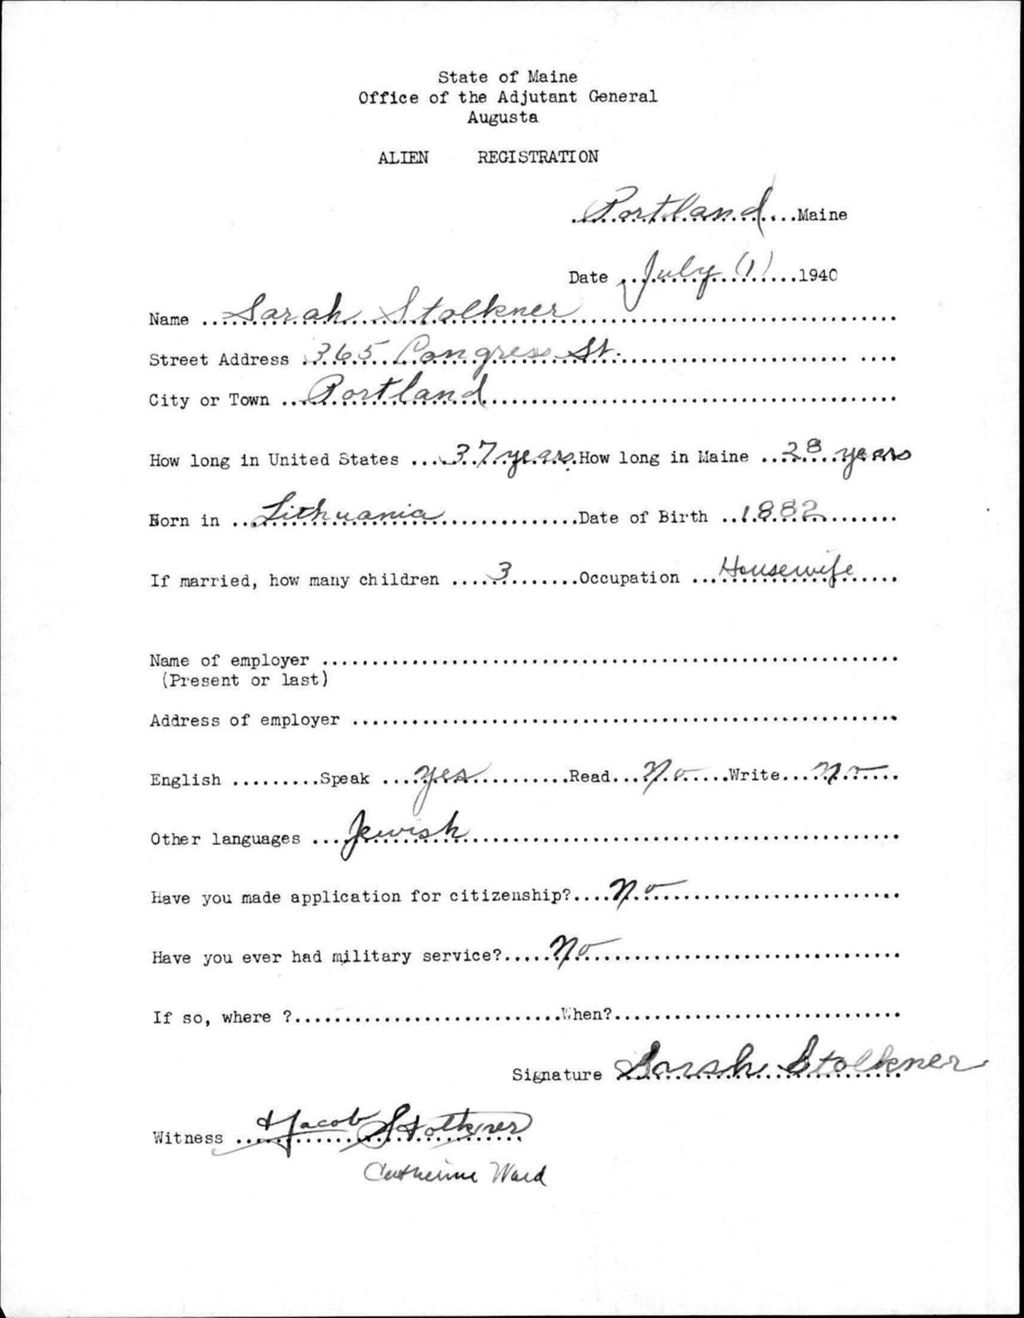 State of Maine
Office of the Adjutant General
Augusta
ALIEN REGISTRATION
Portland Maine
Date July (1) 1940
Name Sarah Stolkner
Street Address 365 Congress St.
City or Town Portland
How long in United States 37 years How long in Maine 28 years
Born in Lithuania Date of Birth 1882
If married, how many children 3 Occupation Housewife
Name of employer
(Present or last)
Address of employer
English Speak yes Read No Write no
Other languages Jewish
Have you made application for citizenship? No
Have you ever had military service? No
If so, where ? When?
Signature Sarah Stolkner
Witness Jacob Stolkner
Catherine Ward